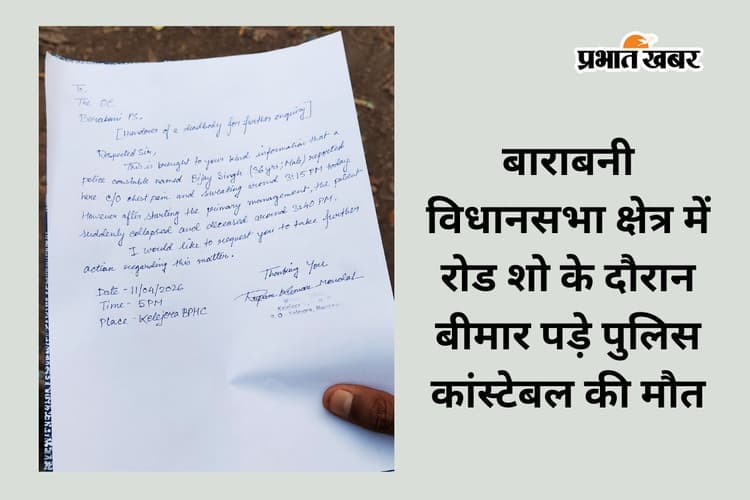 To,
The OC
Barabani PS.
[Handover of a deadbody for further enquiry]
Respected Sir,
This is brought to your kind information that a
police constable named Bijay Singh (36 yrs; Male) reported
here c/o chest pain and sweating around 3:15 PM today.
However after starting the primary management, the patient
suddenly collapsed and deceased around 3:40 PM.
I would like to request you to take further
action regarding this matter.
Date - 11/04/2026
Time - 5 PM
Place - Kelejora BPHC
Thanking You
प्रभात खबर
बाराबनी
विधानसभा क्षेत्र में
रोड शो के दौरान
बीमार पड़े पुलिस
कांस्टेबल की मौत